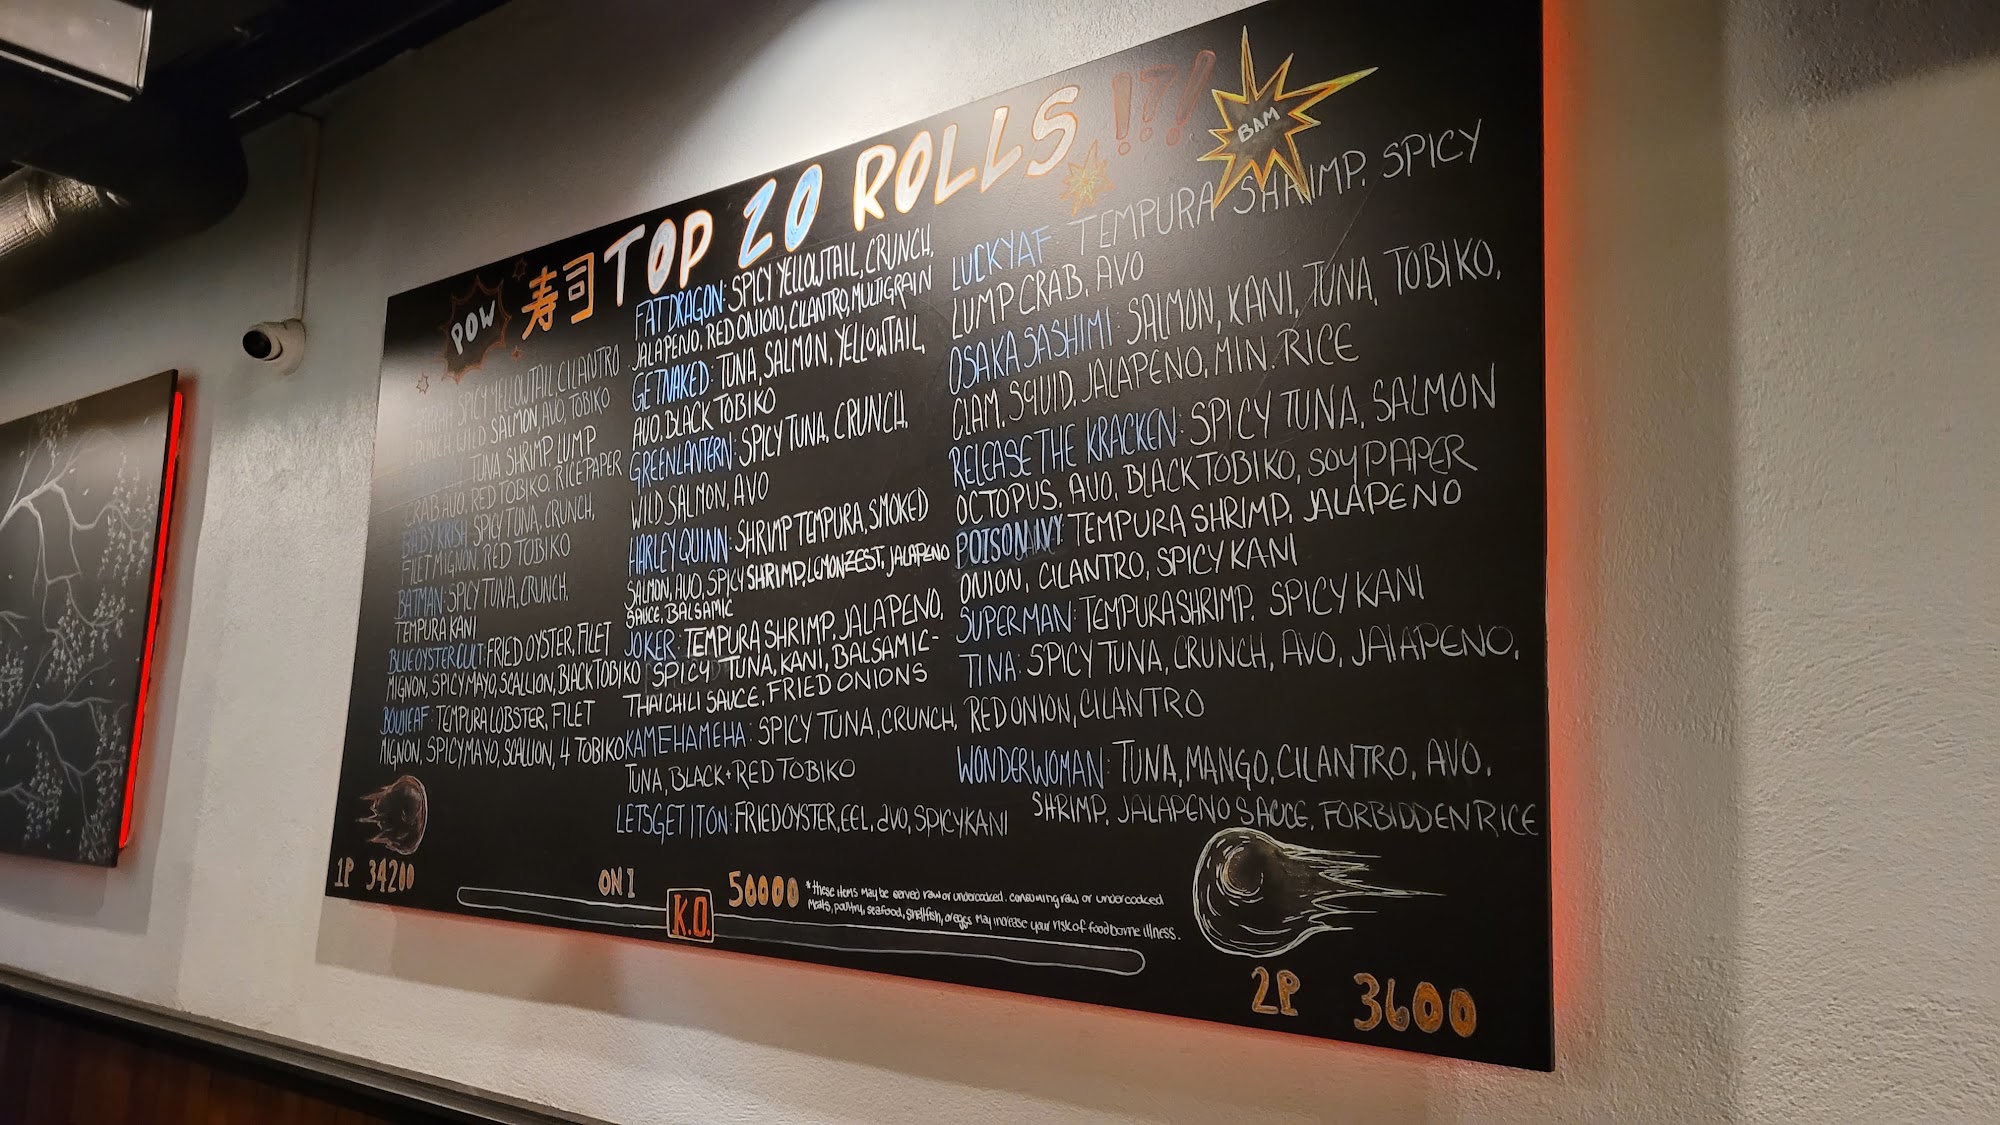 POW
寿司 TOP 20 ROLLS !?!
BAM
SPICY YELLOWTAIL, CILANTRO
CRUNCH, WILD SALMON, AVO, TOBIKO
TUNA SHRIMP LUMP
CRAB AVO, RED TOBIKO, RICE PAPER
BABY KRISH: SPICY TUNA, CRUNCH,
FILET MIGNON. RED TOBIKO
BATMAN: SPICY TUNA, CRUNCH,
TEMPURA KANI
BLUE OYSTER CULT: FRIED OYSTER, FILET
MIGNON, SPICY MAYO, SCALLION, BLACK TOBIKO
BOUJIEAF: TEMPURA LOBSTER, FILET
MIGNON, SPICY MAYO, SCALLION, 4 TOBIKO
FAT DRAGON: SPICY YELLOWTAIL, CRUNCH,
JALAPENO, RED ONION, CILANTRO, MULTIGRAIN
GETNAKED: TUNA, SALMON, YELLOWTAIL,
AVO, BLACK TOBIKO
GREENLANTERN: SPICY TUNA, CRUNCH,
WILD SALMON, AVO
HARLEY QUINN: SHRIMP TEMPURA, SMOKED
SALMON, AVO, SPICY SHRIMP, LEMONZEST, JALAPENO
SAUCE, BALSAMIC
JOKER: TEMPURA SHRIMP, JALAPENO,
SPICY TUNA, KANI, BALSAMIC-
THAI CHILI SAUCE, FRIED ONIONS
KAMEHAMEHA: SPICY TUNA, CRUNCH,
TUNA, BLACK + RED TOBIKO
LETSGET IT ON: FRIED OYSTER, EEL, AVO, SPICY KANI
LUCKYAF: TEMPURA SHRIMP. SPICY
LUMP CRAB, AVO
OSAKA SASHIMI: SALMON, KANI, TUNA, TOBIKO,
CLAM, SQUID, JALAPENO, MIN. RICE
RELEASE THE KRACKEN: SPICY TUNA, SALMON
OCTOPUS, AVO, BLACK TOBIKO, SOY PAPER
POISON IVY: TEMPURA SHRIMP, JALAPENO
ONION, CILANTRO, SPICY KANI
SUPERMAN: TEMPURA SHRIMP, SPICY KANI
TINA: SPICY TUNA, CRUNCH, AVO, JALAPENO,
RED ONION, CILANTRO
WONDERWOMAN: TUNA, MANGO, CILANTRO, AVO,
SHRIMP, JALAPENO SAUCE, FORBIDDEN RICE
1P 34200
ON 1
K.O.
50000
*these items may be served raw or undercooked. consuming raw or undercooked
meats, poultry, seafood, shellfish, or eggs may increase your risk of foodborne illness.
2P 3600